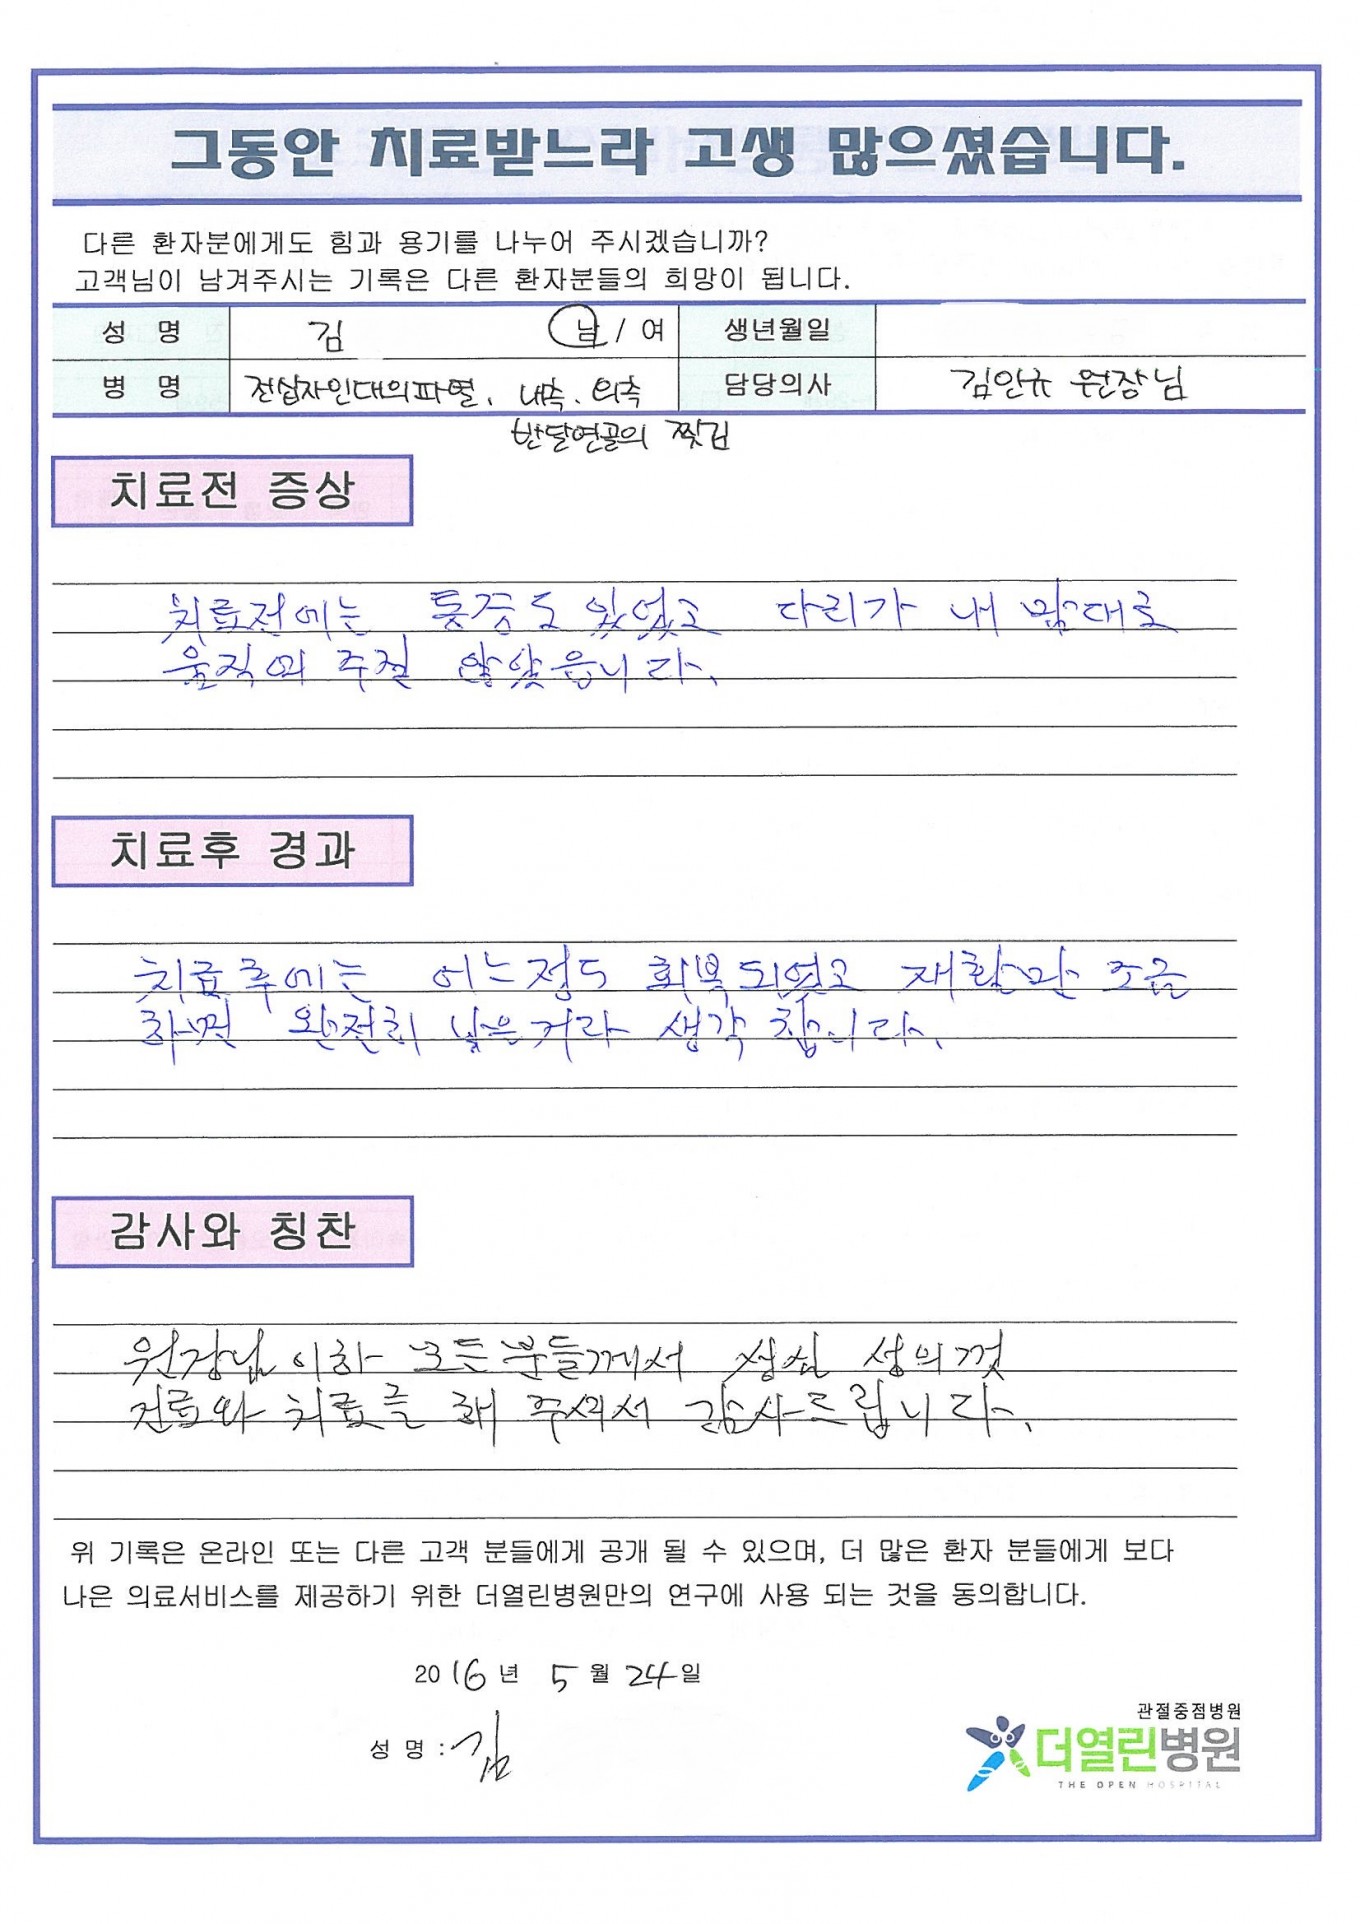 그동안 치료받느라 고생 많으셨습니다.
다른 환자분에게도 힘과 용기를 나누어 주시겠습니까?
고객님이 남겨주시는 기록은 다른 환자분들의 희망이 됩니다.
성 명 김 남 / 여 생년월일
병 명 전십자인대의파열, 내측. 외측 담당의사 김안규 원장님
반달연골의 찢김
치료전 증상
치료전에는 통증도 있었고 다리가 내 맘대로
움직여 주질 않았읍니다.
치료후 경과
치료후에는 어느정도 회복되었고 재활만 조금
하면 완전히 낳은거라 생각 합니다.
감사와 칭찬
원장님 이하 모든분들께서 성심 성의껏
진료와 치료를 해 주셔서 감사드립니다.
위 기록은 온라인 또는 다른 고객 분들에게 공개 될 수 있으며, 더 많은 환자 분들에게 보다
나은 의료서비스를 제공하기 위한 더열린병원만의 연구에 사용 되는 것을 동의합니다.
2016년 5월 24일
성 명 : 김
관절중점병원
더열린병원
THE OPEN HOSPITAL